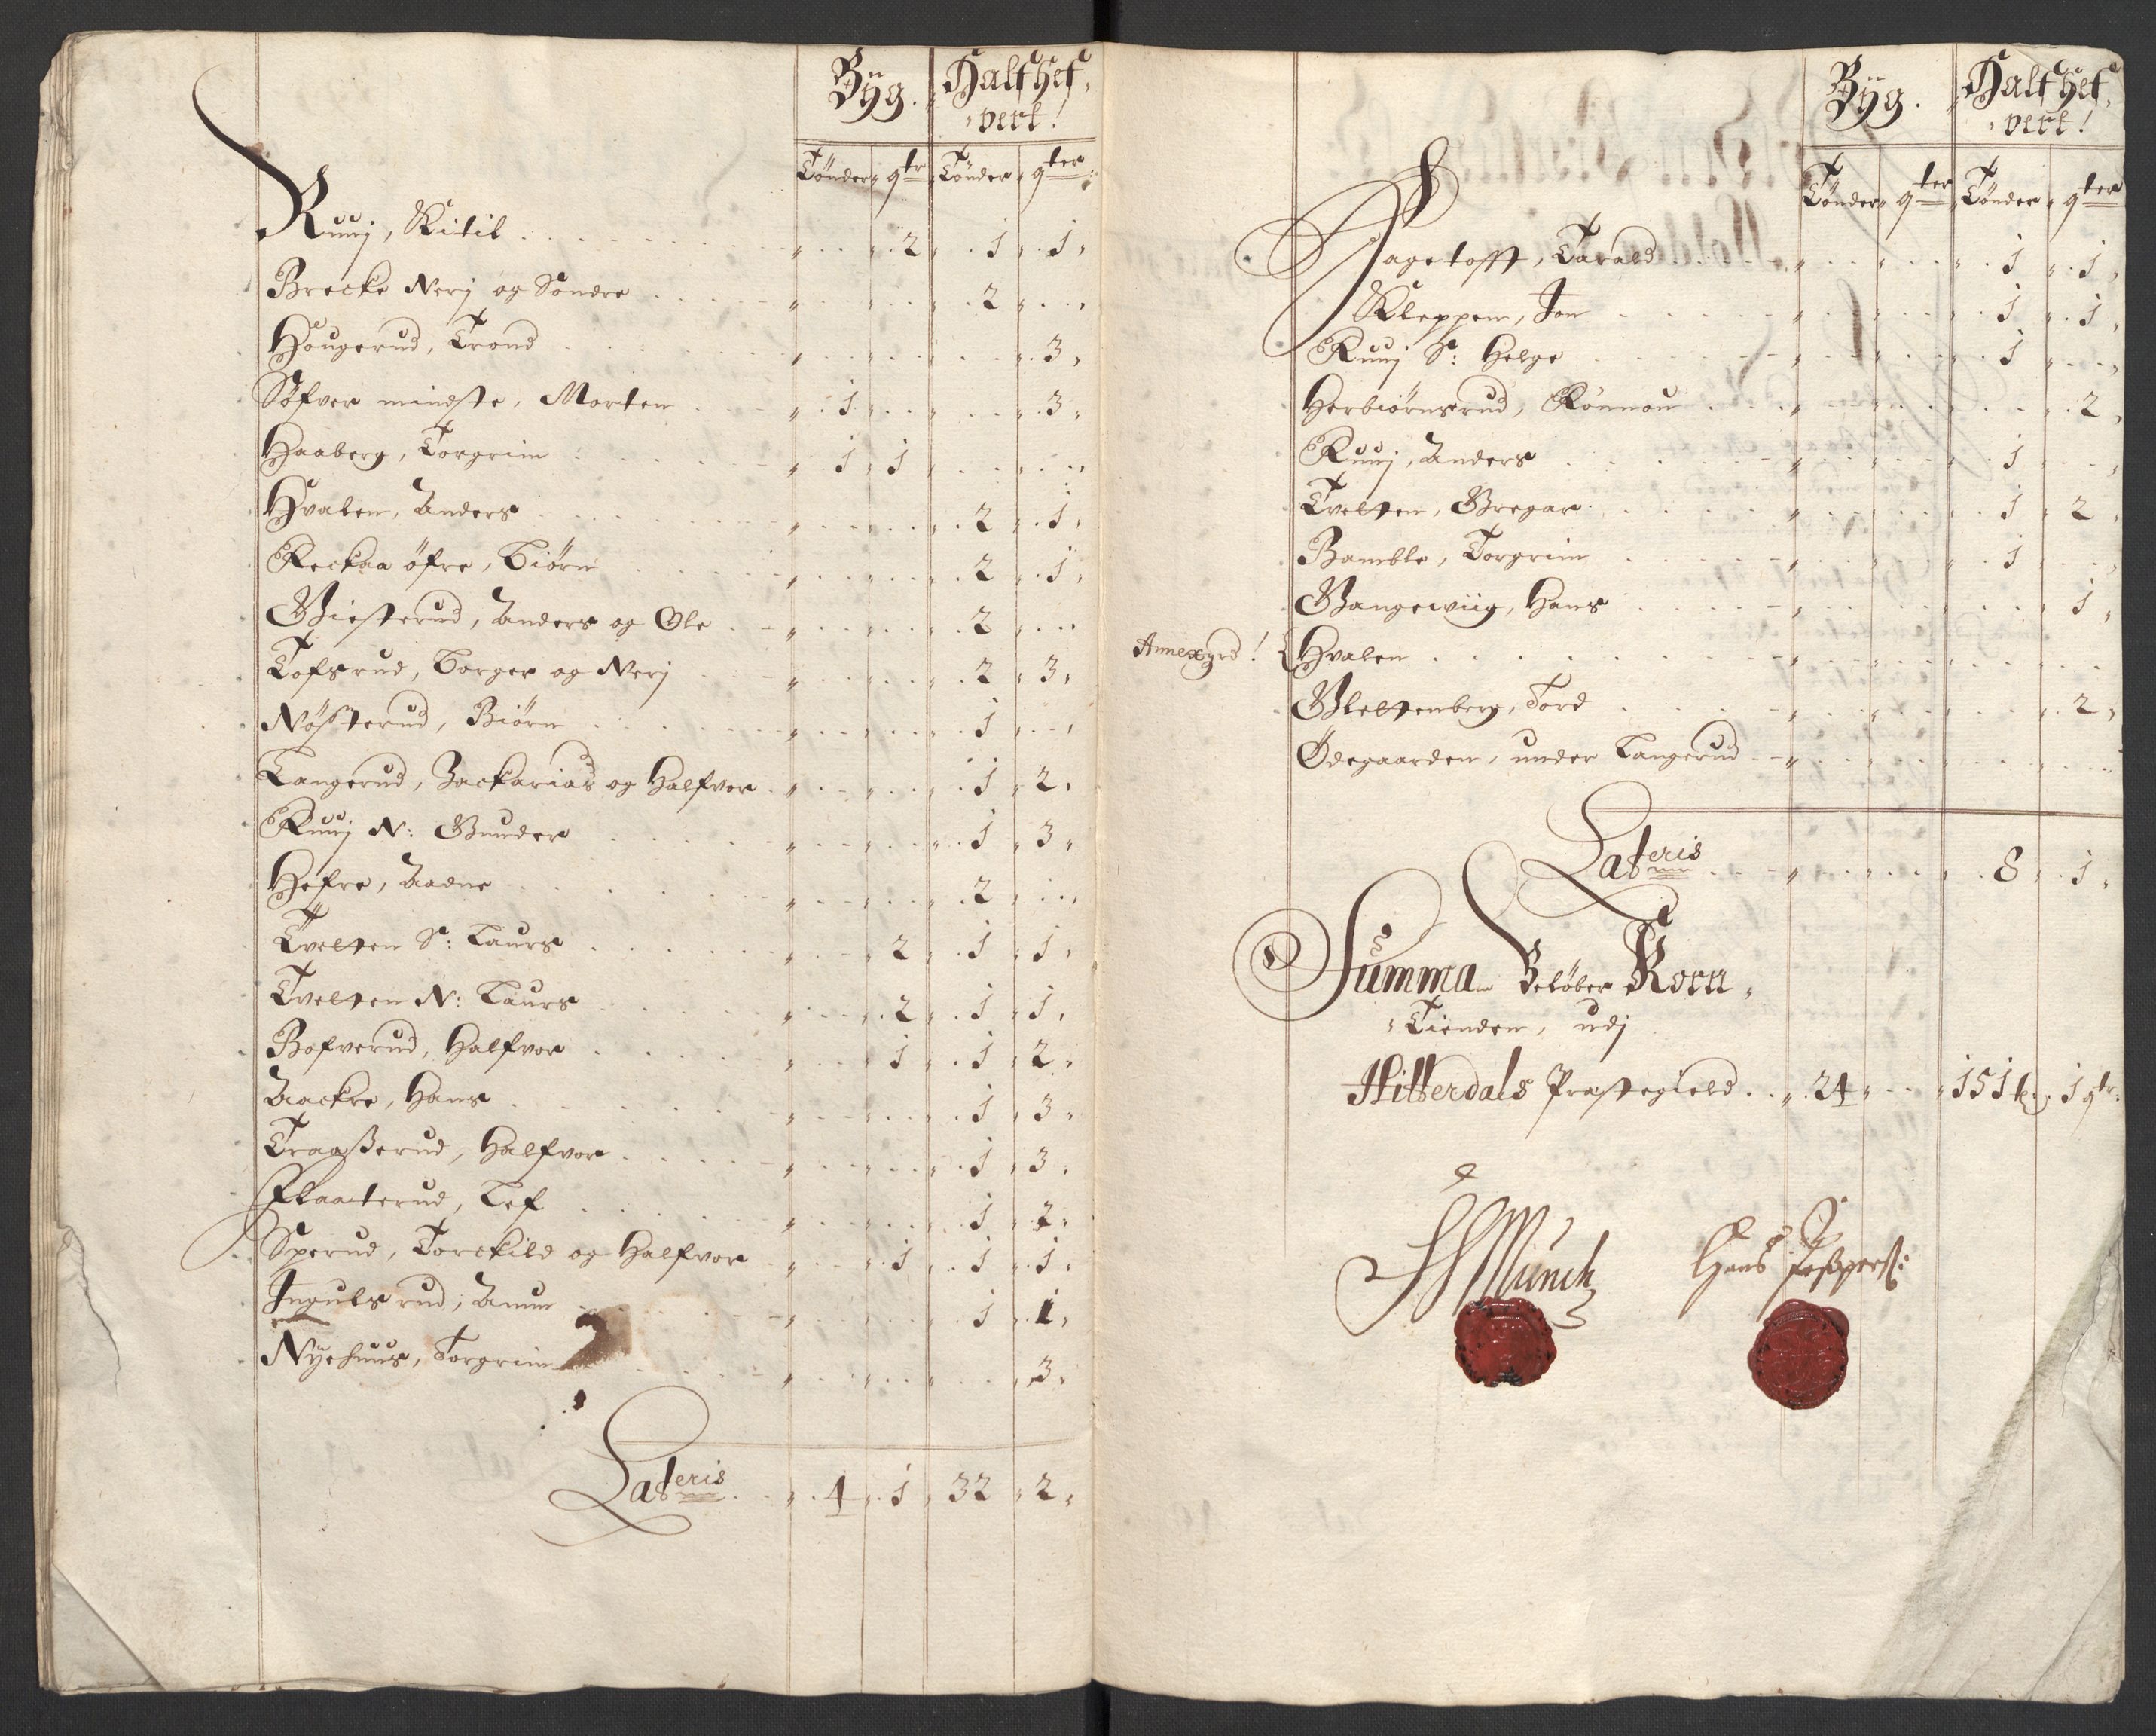 Byg. Halfhef,
vert!
Tönder qtr Tönder qter
Ruuj, Kitil . . 2 1 1
Brecke Nerj og Söndre . . 2
Hougerud, Trond . . 3
Söfver mindste, Morten . . 1 3
Haaberg, Torgrim . . 1 1
Hvalen, Anders . . 2 1
Reckaa öfre, Biörn . . 2 1
Giesterud, Anders og Ole . . 2
Tofsrud, Borger og Nerj . . 2 3
Nöhsterud, Biörn . . 1
Langerud, Zackarias og Halfvor . 1 2
Ruuj N: Gunder . . 1 3
Hefre, Aadne . . 2
Tvelten S: Laurs . . 2 1 1
Tvelten N: Laurs . . 2 1 1
Bofverud, Halfvor . . 1 1 2
Aackre, Hans . . 1 3
Traaßerud, Halfvor . . 1 3
Flaaterud, Lef . . 1 2
Sperud, Torckild og Halfvor . 1 1 1
Ingulsrud, Amun . . 1 1
Nyehuus, Torgrim . . 3
Lateris . . 4 1 32 2
Byg. Halfhef,
vert!
Tönder qter Tönder qter
Hagetofft, Tarald . . 1 1
Kleppen, Jon . . 1 1
Ruuj S: Helge . . 1
Herbiörnsrud, Rönnou . . 2
Ruuj, Anders . . 1
Tvelten, Gregar . . 1 2
Bamble, Torgrim . . 1
Gangewiig, Hans . . 1
Annexgrd! Hvalen . .
Gleltenberg, Tord . . 2
Ödegaarden, under Langerud . .
Lateris . . 8 1
Summa Belöber Korn,
Tienden, udj
Hitterdals Præstegield . . 24 151 t. 1 qtr.
Munch Hans Jespers: